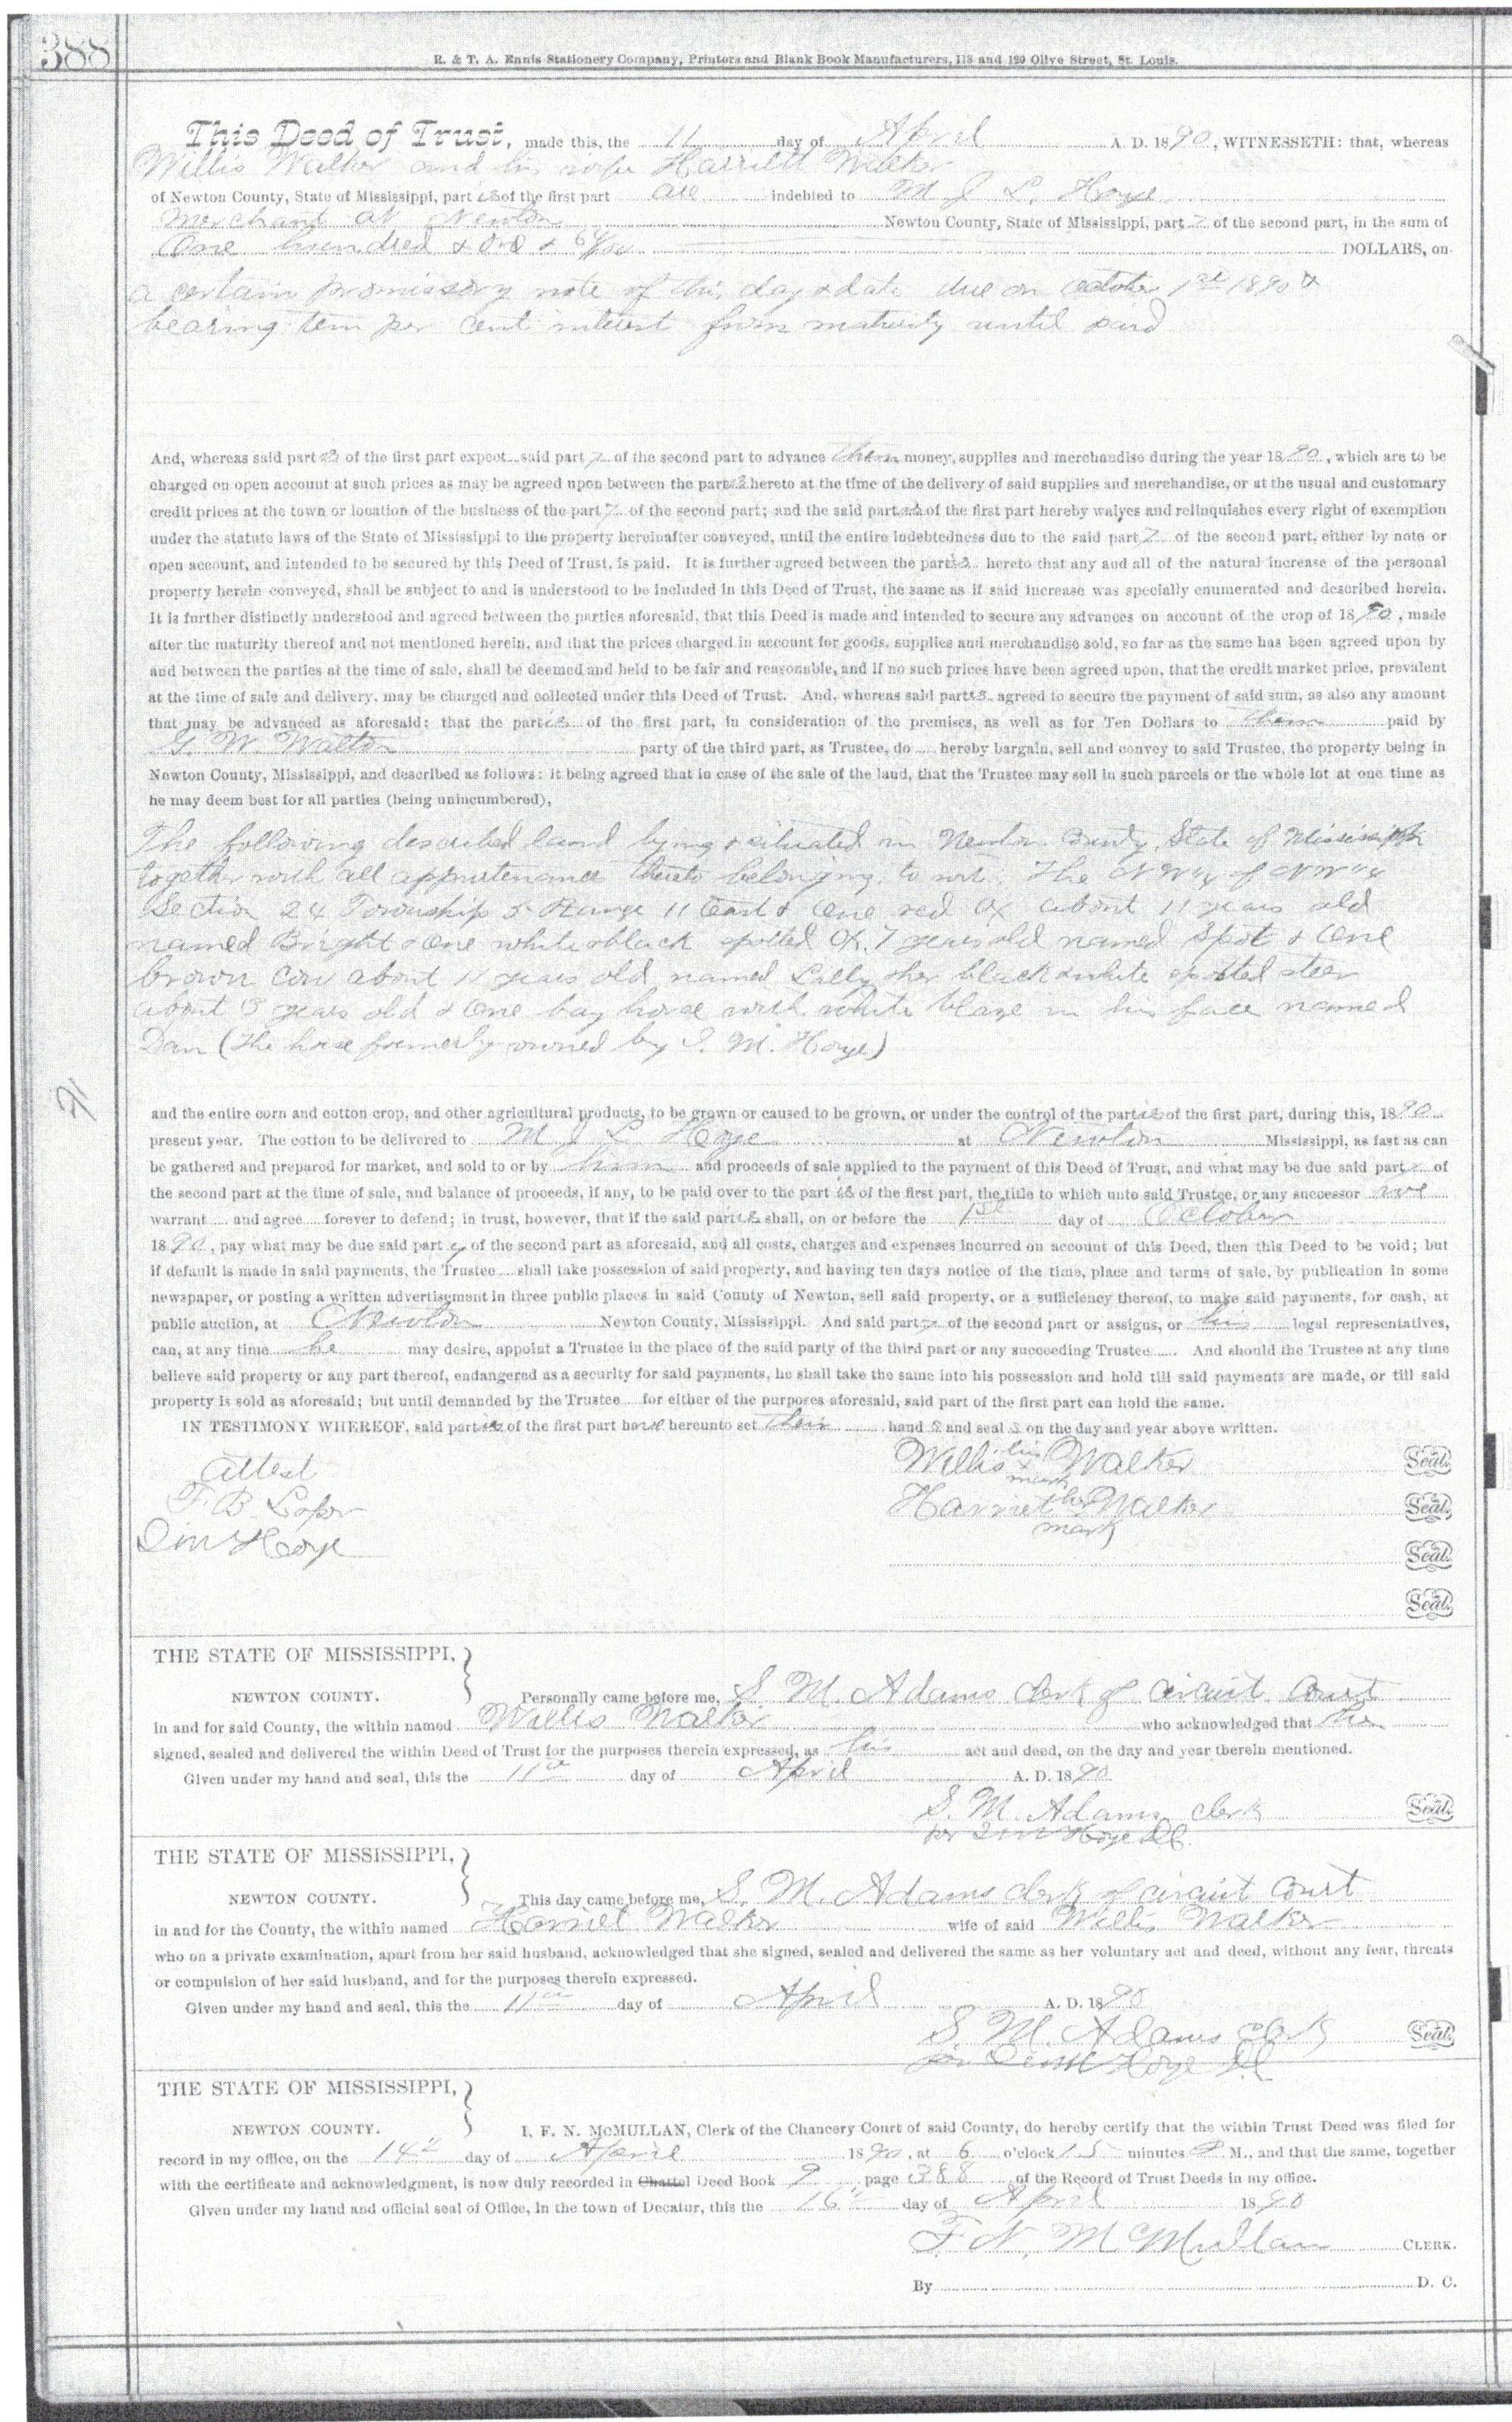 388
R. & T. A. Ennis Stationery Company, Printers and Blank Book Manufacturers, 118 and 120 Olive Street, St. Louis.
This Deed of Trust, made this, the 11 day of April A. D. 1890, WITNESSETH: that, whereas
Willis Walker and his wife Harriett Walker
of Newton County, State of Mississippi, part ies of the first part are indebted to M J L. Hoye
Merchant at Newton Newton County, State of Mississippi, part y of the second part, in the sum of
One hundred & & DOLLARS, on
a certain promissory note of this day & date due on October 1st 1890 &
bearing tem per cent interest from maturity until paid
And, whereas said part ies of the first part expect said part y of the second part to advance them money, supplies and merchandise during the year 1890, which are to be
charged on open account at such prices as may be agreed upon between the parties hereto at the time of the delivery of said supplies and merchandise, or at the usual and customary
credit prices at the town or location of the business of the part y of the second part; and the said part ies of the first part hereby waives and relinquishes every right of exemption
under the statute laws of the State of Mississippi to the property hereinafter conveyed, until the entire indebtedness due to the said part y of the second part, either by note or
open account, and intended to be secured by this Deed of Trust, is paid. It is further agreed between the parties hereto that any and all of the natural increase of the personal
property herein conveyed, shall be subject to and is understood to be included in this Deed of Trust, the same as if said increase was specially enumerated and described herein.
It is further distinctly understood and agreed between the parties aforesaid, that this Deed is made and intended to secure any advances on account of the crop of 1890, made
after the maturity thereof and not mentioned herein, and that the prices charged in account for goods, supplies and merchandise sold, so far as the same has been agreed upon by
and between the parties at the time of sale, shall be deemed and held to be fair and reasonable, and if no such prices have been agreed upon, that the credit market price, prevalent
at the time of sale and delivery, may be charged and collected under this Deed of Trust. And, whereas said parties agreed to secure the payment of said sum, as also any amount
that may be advanced as aforesaid: that the parties of the first part, in consideration of the premises, as well as for Ten Dollars to them paid by
G. W. Walton party of the third part, as Trustee, do hereby bargain, sell and convey to said Trustee, the property being in
Newton County, Mississippi, and described as follows: it being agreed that in case of the sale of the land, that the Trustee may sell in such parcels or the whole lot at one time as
he may deem best for all parties (being unincumbered),
The following described land lying & situated in Newton County State of Mississippi
together with all appurtenances thereto belonging to wit: The NW¼ of NW¼
Section 24 Township 5 Range 11 East & One red Ox about 11 years old
named Bright & one white & black spotted Ox, 7 years old named Spot & One
brown cow about 11 years old named Lally & her black & white spotted steer
about 3 years old & One bay horse with white blaze in his face named
Dan (the horse formerly owned by I. M. Hoye)
and the entire corn and cotton crop, and other agricultural products, to be grown or caused to be grown, or under the control of the parties of the first part, during this, 1890
present year. The cotton to be delivered to M J L Hoye at Newton Mississippi, as fast as can
be gathered and prepared for market, and sold to or by him and proceeds of sale applied to the payment of this Deed of Trust, and what may be due said part y of
the second part at the time of sale, and balance of proceeds, if any, to be paid over to the part ies of the first part, the title to which unto said Trustee, or any successor we
warrant and agree forever to defend; in trust, however, that if the said parties shall, on or before the 1st day of October
1890, pay what may be due said part y of the second part as aforesaid, and all costs, charges and expenses incurred on account of this Deed, then this Deed to be void; but
if default is made in said payments, the Trustee shall take possession of said property, and having ten days notice of the time, place and terms of sale, by publication in some
newspaper, or posting a written advertisement in three public places in said County of Newton, sell said property, or a sufficiency thereof, to make said payments, for cash, at
public auction, at Newton Newton County, Mississippi. And said part y of the second part or assigns, or his legal representatives,
can, at any time he may desire, appoint a Trustee in the place of the said party of the third part or any succeeding Trustee. And should the Trustee at any time
believe said property or any part thereof, endangered as a security for said payments, he shall take the same into his possession and hold till said payments are made, or till said
property is sold as aforesaid; but until demanded by the Trustee for either of the purposes aforesaid, said part of the first part can hold the same.
IN TESTIMONY WHEREOF, said parties of the first part have hereunto set their hand s and seal s on the day and year above written.
Attest Willis his x mark Walker Seal.
F. B. Loper Harriet her x mark Walker Seal.
I M Hoye Seal.
Seal.
THE STATE OF MISSISSIPPI,
NEWTON COUNTY. Personally came before me, S. M. Adams Clerk of Circuit Court
in and for said County, the within named Willis Walker who acknowledged that he
signed, sealed and delivered the within Deed of Trust for the purposes therein expressed, as his act and deed, on the day and year therein mentioned.
Given under my hand and seal, this the 11th day of April A. D. 1890
S. M. Adams Clerk Seal.
per I M Hoye D.C.
THE STATE OF MISSISSIPPI,
NEWTON COUNTY. This day came before me, S. M. Adams clerk of circuit Court
in and for the County, the within named Harriet Walker wife of said Willis Walker
who on a private examination, apart from her said husband, acknowledged that she signed, sealed and delivered the same as her voluntary act and deed, without any fear, threats
or compulsion of her said husband, and for the purposes therein expressed.
Given under my hand and seal, this the 11th day of April A. D. 1890
S. M. Adams Clerk Seal.
per I M Hoye D.C.
THE STATE OF MISSISSIPPI,
NEWTON COUNTY. I, F. N. McMULLAN, Clerk of the Chancery Court of said County, do hereby certify that the within Trust Deed was filed for
record in my office, on the 14th day of April 1890, at 6 o'clock 15 minutes P M., and that the same, together
with the certificate and acknowledgment, is now duly recorded in Chattel Deed Book 9, page 388 of the Record of Trust Deeds in my office.
Given under my hand and official seal of Office, in the town of Decatur, this the 16th day of April 1890
F. N. McMullan CLERK.
By D. C.